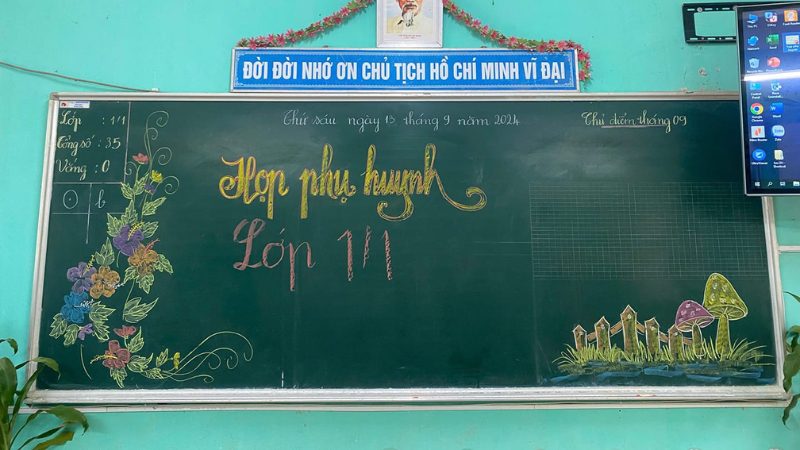 ĐỜI ĐỜI NHỚ ƠN CHỦ TỊCH HỒ CHÍ MINH VĨ ĐẠI
Lớp : 1/1
Tổng số : 35
Vắng : 0
Thứ sáu ngày 13 tháng 9 năm 2024
Thu điểm tháng 09
Họp phụ huynh
Lớp 1/1